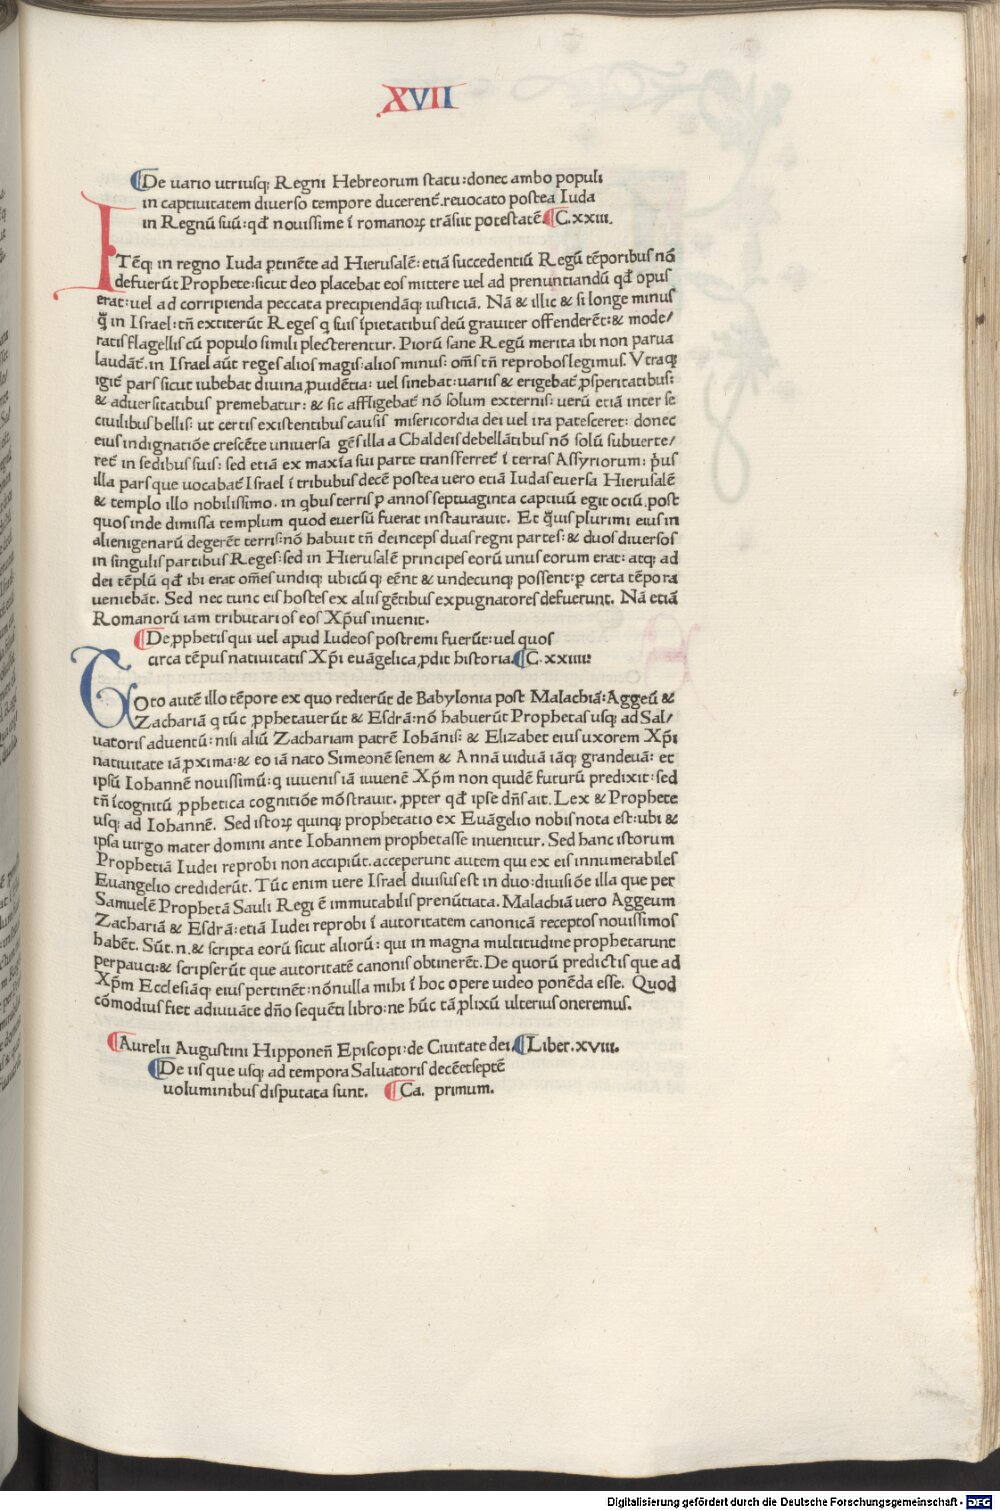 XVII
De uario utriusq; Regni Hebreorum statu: donec ambo populi
in captiuitatem diuerso tempore ducerent̃. reuocato postea Iuda
in Regnũ suũ: qd̃ nouissime ĩ romanoꝝ trãsiit potestatẽ C. xxiii.
ITẽq; in regno Iuda ꝑtinẽte ad Hierusalẽ: etiã succedentiũ Regũ tẽporibus nõ
defuerũt Prophete: sicut deo placebat eos mittere uel ad prenuntiandũ qd̃ opus
erat: uel ad corripienda peccata precipiendãq; iusticiã. Nã & illic & si longe minus
q̃ in Israel: tñ extiterũt Reges q̃ suis ĩpietatibus deũ grauiter offenderẽt: & mode/
ratis flagellis cũ populo simili plecterentur. Pioꝝ sane Regũ merita ibi non parua
laudãt̃. in Israel aũt reges alios magis: alios minus: oms̃ tñ reprobos legimus. Vtraq;
igit̃ pars sicut iubebat diuina ꝓuidẽtia: uel sinebat: uariis & erigebat̃ ꝓsperitatibus:
& aduersitatibus premebatur: & sic affligebat̃ nõ solum externis: uerũ etiã inter se
ciuilibus bellis: ut certis existentibus causis misericordia dei uel ira patesceret: donec
eius indignatiõe crescẽte uniuersa gẽs illa a Chaldeis debellãtibus nõ solũ subuerte/
ret̃ in sedibus suis: sed etiã ex maxĩa sui parte transferret̃ ĩ terras Assyriorum: p̃us
illa pars que uocabat̃ Israel ĩ tribubus decẽ postea uero etiã Iudas euersa Hierusalẽ
& templo illo nobilissimo. in qbus terris ꝑ annos septuaginta captiuũ egit ociũ. post
quos inde dimissa templum quod euersũ fuerat instaurauit. Et q̃uis plurimi eius in
alienigenarũ degerẽt terris: nõ habuit tñ deinceps duas regni partes: & duos diuersos
in singulis partibus Reges: sed in Hierusalẽ princeps eorũ unus eorum erat: atq; ad
dei tẽplũ qd̃ ibi erat omẽs undiq; ubicũq; eẽnt & undecunq; possent: ꝑ certa tẽpora
ueniebãt. Sed nec tunc eis hostes ex aliis gẽtibus expugnatores defuerunt. Nã etiã
Romanorũ iam tributarios eos Xp̃us inuenit.
De ꝓphetis qui uel apud Iudeos postremi fuerũt: uel quos
circa tẽpus natiuitatis Xp̃i euãgelica ꝓdit historia. C. xxiiii:
TOto autẽ illo tẽpore ex quo redierũt de Babylonia post Malachiã: Aggeũ &
Zachariã q̃ tũc ꝓphetauerũt & Esdrã: nõ habuerũt Prophetas usq; ad Sal/
uatoris aduentũ: nisi aliũ Zachariam patrẽ Iohãnis: & Elizabet eius uxorem Xp̃i
natiuitate iã ꝓxima: & eo iã nato Simeonẽ senem & Annã uiduã iãq; grandeuã: et
ipsũ Iohannẽ nouissimũ: q̃ iuuenis iã iuuenẽ Xp̃m non quidẽ futurũ predixit: sed
tñ ĩcognitũ ꝓphetica cognitiõe mõstrauit. ꝓpter qd̃ ipse dñs ait. Lex & Prophete
usq; ad Iohannẽ. Sed istoꝝ quinq; prophetatio ex Euãgelio nobis nota est: ubi &
ipsa uirgo mater domini ante Iohannem prophetasse inuenitur. Sed hanc istorum
Prophetiã Iudei reprobi non accipiũt. acceperunt autem qui ex eis innumerabiles
Euangelio crediderũt. Tũc enim uere Israel diuisus est in duo: diuisiõe illa que per
Samuelẽ Prophetã Sauli Regi ẽ immutabilis prenũtiata. Malachiã uero Aggeum
Zachariã & Esdrã: etiã Iudei reprobi ĩ autoritatem canonicã receptos nouissimos
habẽt. Sũt .n. & scripta eorũ sicut aliorũ: qui in magna multitudine prophetarum
perpauci: & scripserũt que autoritatẽ canonis obtinerẽt. De quorũ predictis que ad
Xp̃m Ecclesiãq; eius pertinẽt: nõnulla mihi ĩ hoc opere uideo ponẽda esse. Quod
cõmodius fiet adiuuãte dño sequẽti libro: ne hũc tã ꝓlixũ ulterius oneremus.
Aurelii Augustini Hipponeñ Episcopi: de Ciuitate dei. Liber. xviii.
De iis que usq; ad tempora Saluatoris decẽetseptẽ
uoluminibus disputata sunt. Ca. primum.
Digitalisierung gefördert durch die Deutsche Forschungsgemeinschaft - DFG